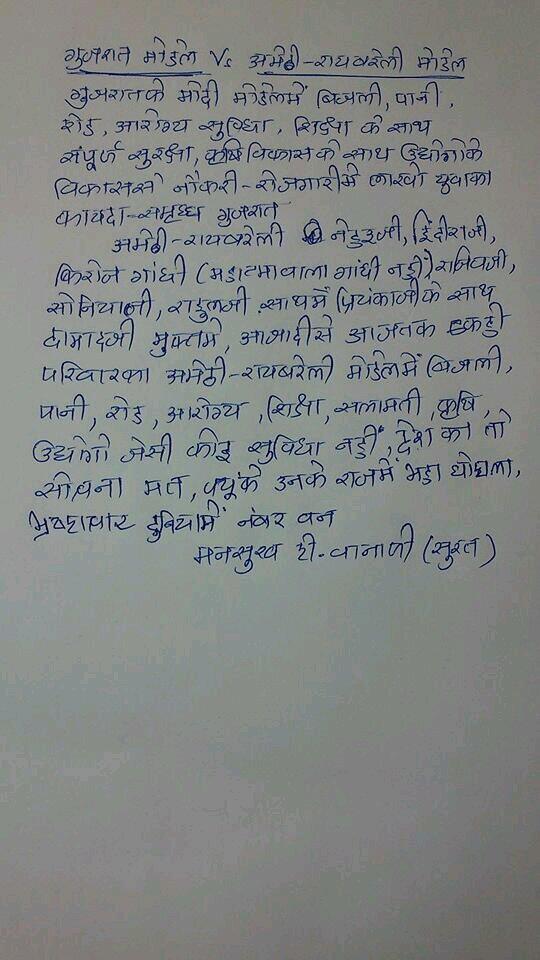 गुजरात मोडेल Vs अमेठी-रायबरेली मोडेल
गुजरातके मोदी मोडेलमें बिजली, पानी,
रोड, आरोग्य सुविधा, शिक्षा के साथ
संपूर्ण सुरक्षा, कृषि विकास के साथ उद्योगो के
विकाससे नौकरी-रोजगारीमे लाखो युवाका
फायदा-समृध्ध गुजरात
अमेठी-रायबरेली नेहरुजी, इंदीराजी,
फिरोज गांधी (महात्मावाला गांधी नहीं), राजिवजी,
सोनियाजी, राहुलजी साथमें प्रियंकाजी के साथ
दामादजी मुफ्तमे, आजादीसे आजतक एकही
परिवारका अमेठी-रायबरेली मोडेलमें बिजली,
पानी, रोड, आरोग्य, शिक्षा, सलामती, कृषि,
उद्योगो जेसी कोइ सुविधा नहीं, देश का तो
सोचना मत, क्युंके उनके राजमें महा घोघला,
भ्रष्टाचार दुनियामें नंबर वन
मनसुख टी-वानाणी (सुरत)